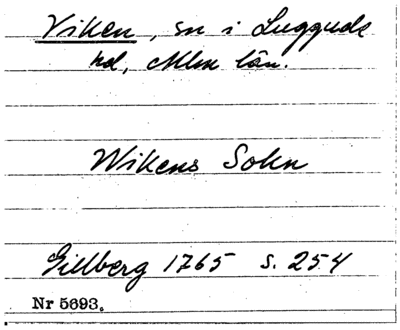 Viken, sn i Luggude
hd, Mlm län.
Wikens Sokn
Gillberg 1765 s. 254
Nr 5693.